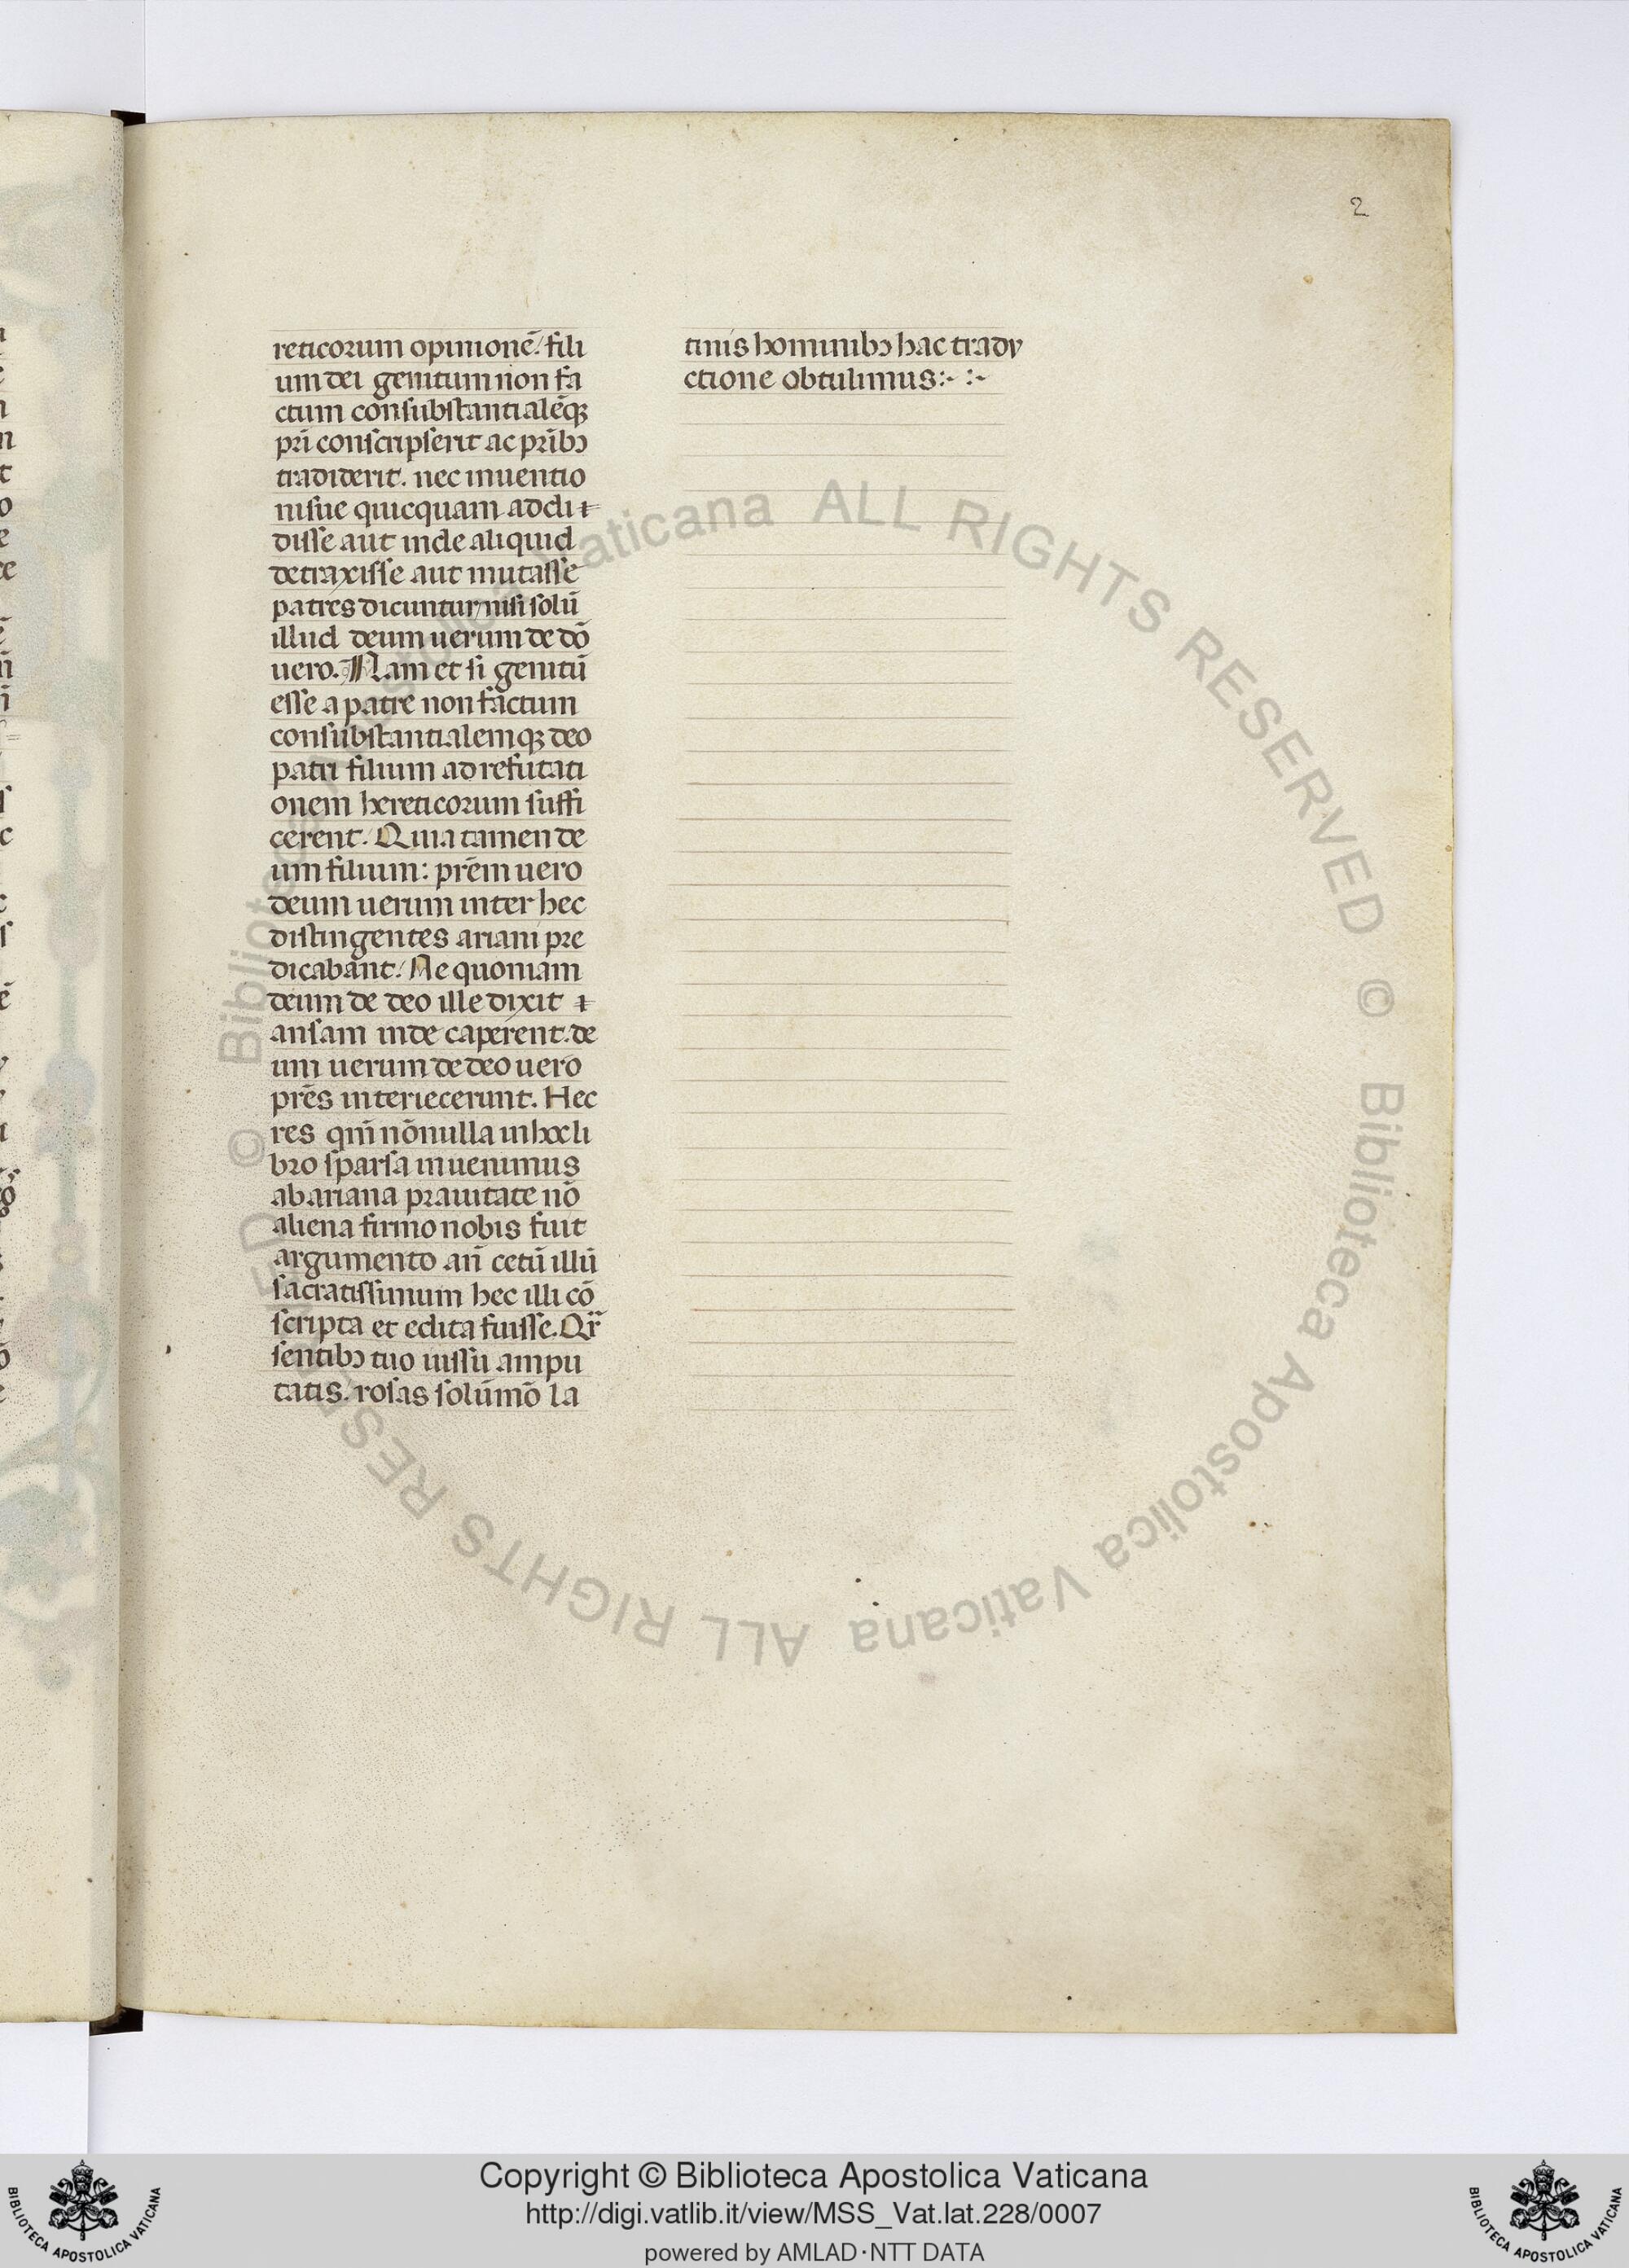 2
reticorum opinionē/ fili
um dei genitum non fa
ctum consubstantialēqꝫ
pr̄i conscripserit ac pr̄ibꝰ
tradiderit. nec inuentio
nisue quicquam addi
disse aut inde aliquid
detraxisse aut mutasse
patres dicuntur/ nisi solū
illud deum uerum de dō
uero. Nam et si genitū
esse a patre non factum
consubstantialemqꝫ deo
patri filium ad refutati
onem hereticorum suffi
cerent/ Quia tamen de
um filium: prēm uero
deum uerum inter hec
distingentes ariani pre
dicabant/ Ne quoniam
deum de deo ille dixit
ansam inde caperent. de
um uerum de deo uero
prēs interiecerunt. Hec
res qm̄ nōnulla in hoc li
bro sparsa inuenimus
ab ariana prauitate nō
aliena firmo nobis fuit
argumento an̄ cetū illū
sacratissimum hec illi cō
scripta et edita fuisse. Qr̄
sentibꝰ tuo iussu ampu
tatis. rosas solūmō la
tinis hominibꝰ hac tradu
ctione obtulimus:~ :~
© Biblioteca Apostolica Vaticana ALL RIGHTS RESERVED © Biblioteca Apostolica Vaticana ALL RIGHTS RESERVED
Copyright © Biblioteca Apostolica Vaticana
http://digi.vatlib.it/view/MSS_Vat.lat.228/0007
powered by AMLAD·NTT DATA
BIBLIOTECA APOSTOLICA VATICANA
BIBLIOTECA APOSTOLICA VATICANA